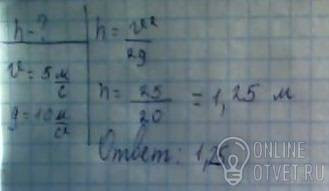 h - ?
v = 5 м/с
g = 10 м/с²
h = v²/2g
h = 25/20 = 1,25 м
Ответ: 1,25
ONLINE
OTVET.RU